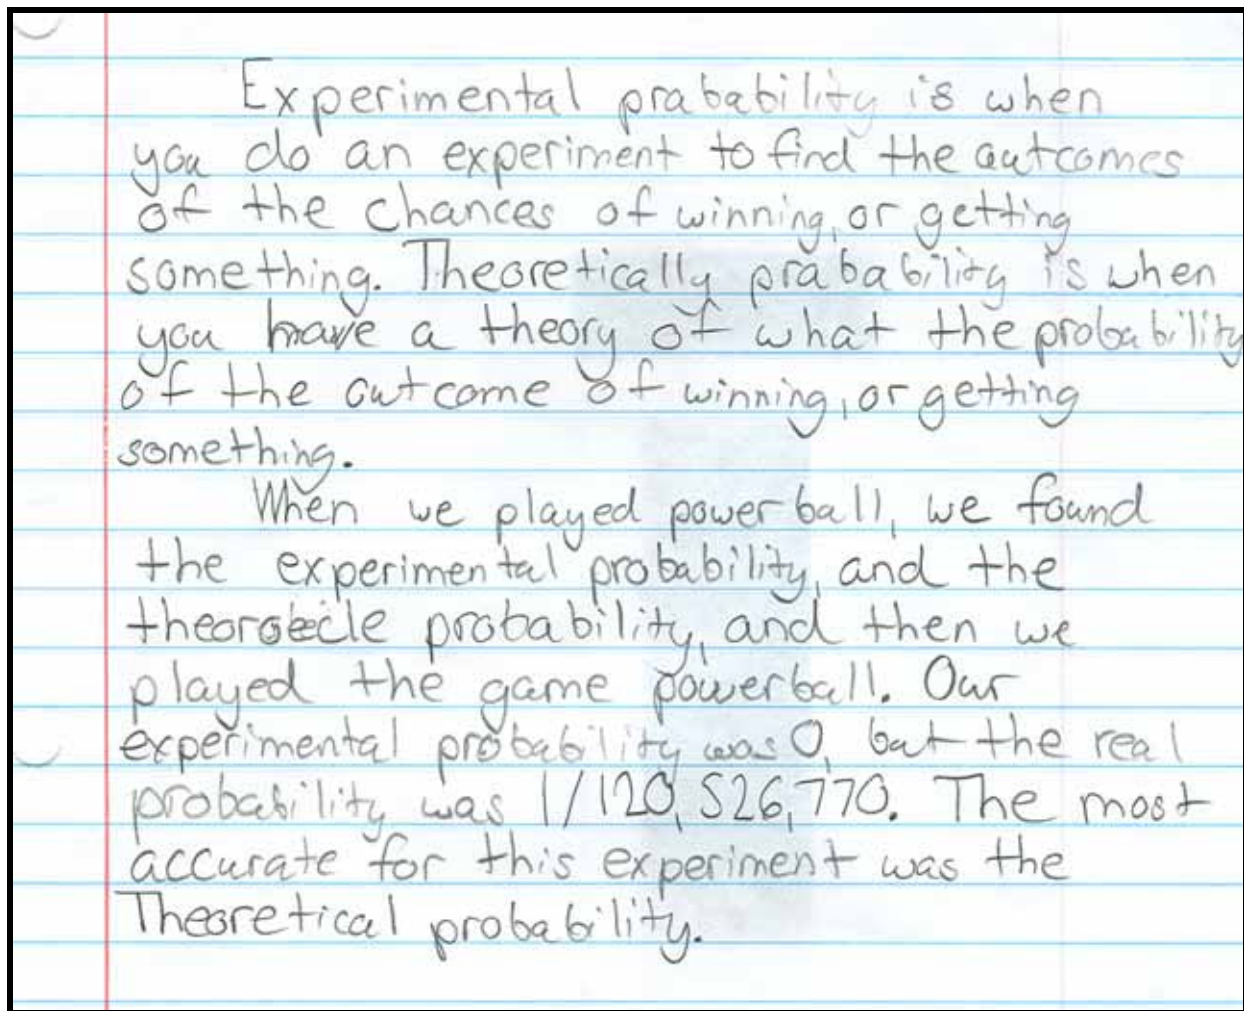 Experimental prabability is when
you do an experiment to find the outcomes
of the chances of winning, or getting
something. Theoretically prabability is when
you have a theory of what the probability
of the outcome of winning, or getting
something.
When we played powerball, we found
the experimental probability, and the
theoroticle probability, and then we
played the game powerball. Our
experimental probability was 0, but the real
probability was 1/120,526,770. The most
accurate for this experiment was the
Theoretical probability.